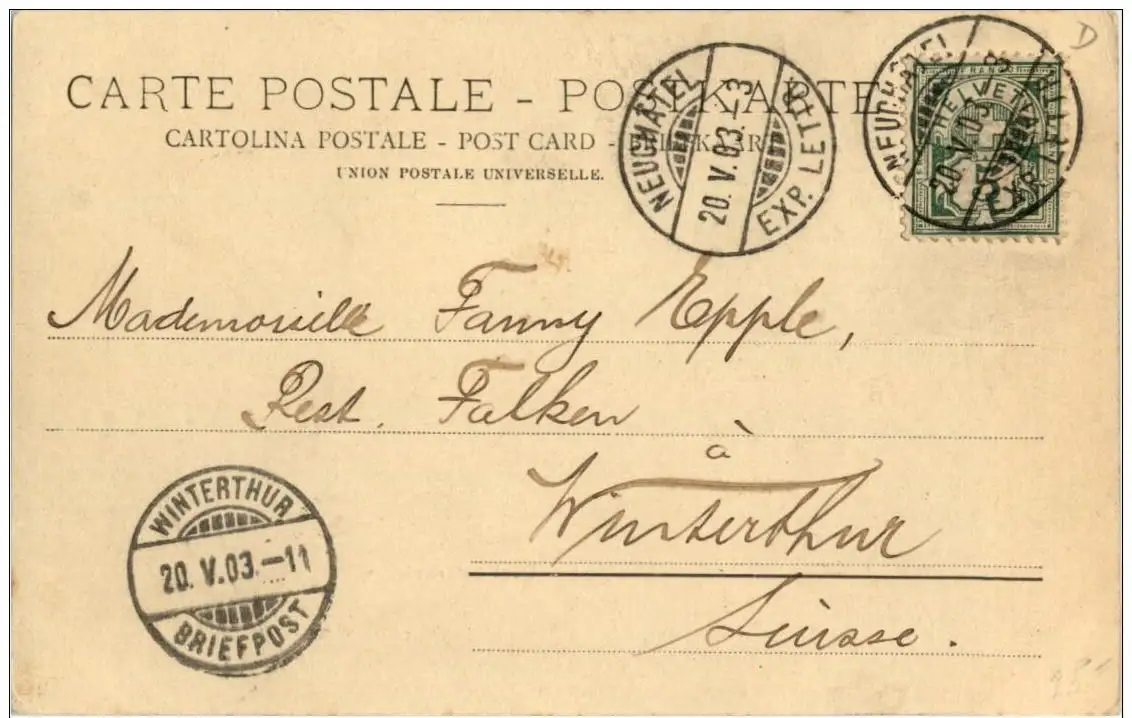 CARTE POSTALE - POSTKARTE
CARTOLINA POSTALE - POST CARD -
UNION POSTALE UNIVERSELLE.
NEUCHATEL
20. V. 03.-3
EXP. LETTR.
NEUCHATEL
20. V. 03.- 8
EXP. LETTR.
FRANCO
HELVETIA
5
D
Mademoiselle Fanny Epple,
Rest. Falken
à
Winterthur
Suisse.
WINTERTHUR
20. V. 03.-11
BRIEFPOST